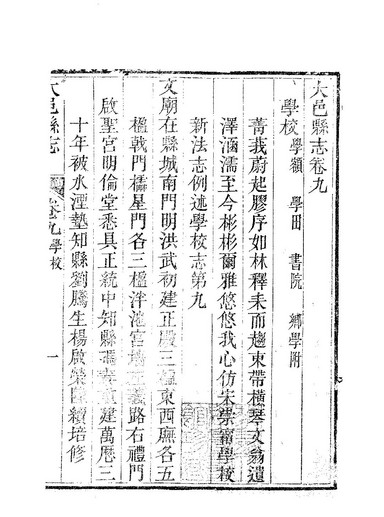 大邑縣志卷九
學校 學額 學田 書院 鄉學附
菁莪蔚起膠序如林釋耒而趨束帶橫琴文翁遺
澤涵濡至今彬彬爾雅悠悠我心仿宋崇寧學校
新法志例述學校志第九
文廟在縣城南門明洪武初建正殿三楹東西廡各五
楹戟門櫺星門各三楹泮池宮墻義路右禮門
啟聖宮明倫堂悉具正統中知縣建萬歷三
十年被水湮墊知縣劉騰生楊啟榮繼續培修
大邑縣志 卷九學校 一